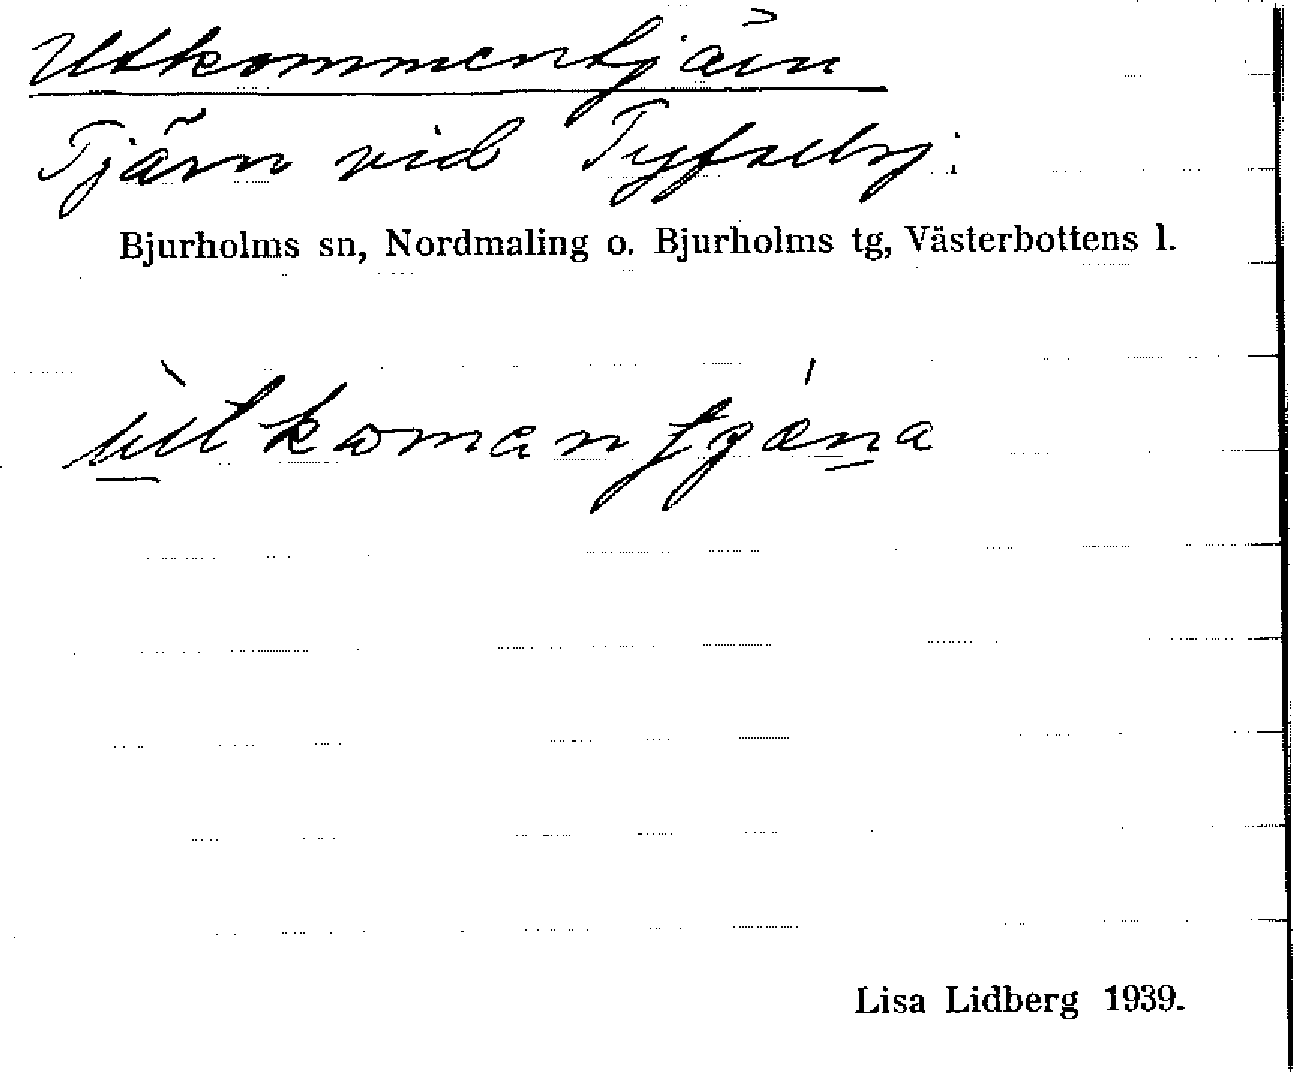 Utkommentjärn
Tjärn vid
Bjurholms sn, Nordmaling o. Bjurholms tg, Västerbottens l.
Lisa Lidberg 1939.